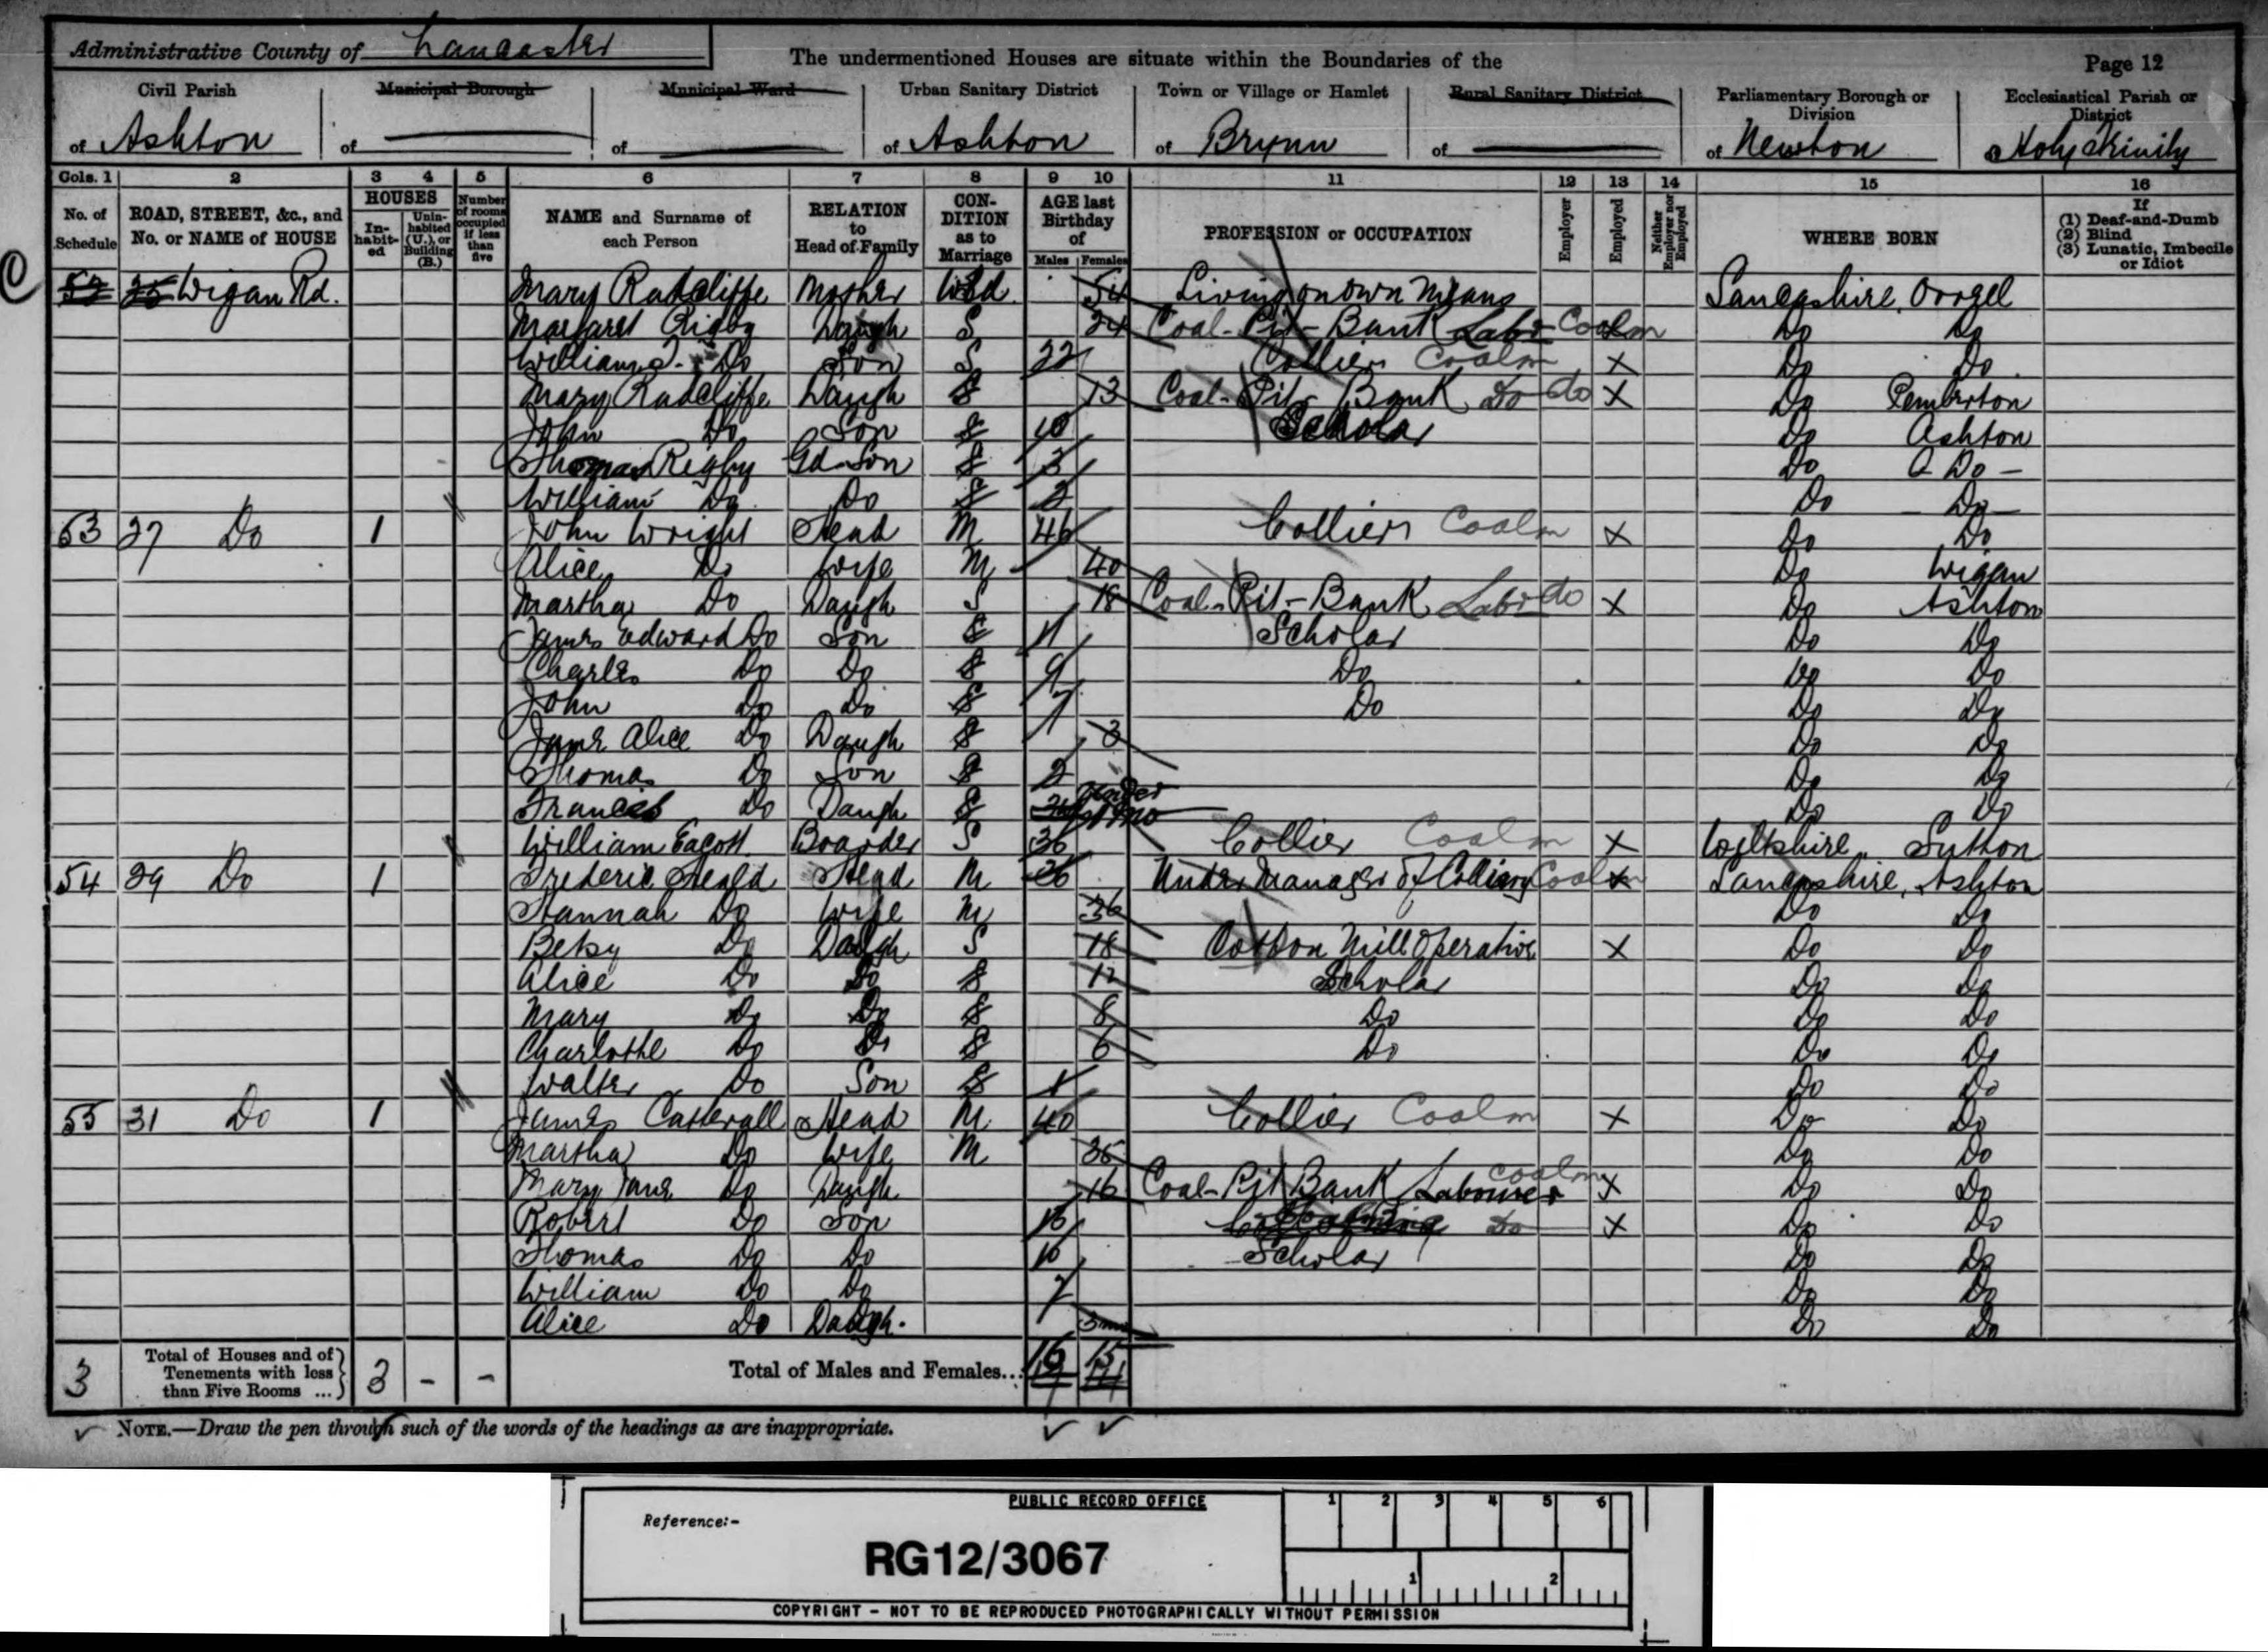 Administrative County of Lancaster
The undermentioned Houses are situate within the Boundaries of the
Page 12
Civil Parish of Ashton
Municipal Borough of
Municipal Ward of
Urban Sanitary District of Ashton
Town or Village or Hamlet of Brynn
Rural Sanitary District of
Parliamentary Borough or Division of Newton
Ecclesiastical Parish or District of Holy Trinity
Cols. 1 2 3 4 5 6 7 8 9 10 11 12 13 14 15 16
No. of Schedule
ROAD, STREET, &c., and No. or NAME of HOUSE
HOUSES
In-habit-ed
Unin-habited (U.), or Building (B.)
Number of rooms occupied if less than five
NAME and Surname of each Person
RELATION to Head of Family
CON-DITION as to Marriage
AGE last Birthday of
Males Females
PROFESSION or OCCUPATION
Employer
Employed
Neither Employer nor Employed
WHERE BORN
If
(1) Deaf-and-Dumb
(2) Blind
(3) Lunatic, Imbecile or Idiot
52 25 Wigan Rd. Mary Radcliffe Mother Wid 54 Living on own Means Lancashire, Orrel
Margaret Rigby Daugh S 24 Coal-Pit-Bank Labr Coalm X Do Do
William Do Son S 22 Collier Coalm X Do Do
Mary Radcliffe Daugh S 13 Coal-Pit-Bank Do do X Do Pemberton
John Do Son S 10 Scholar Do Ashton
Thomas Rigby Gd-Son S 3 Do Do
William Do Do S 2 Do Do
53 27 Do 1 John Wright Head M 46 Collier Coalm X Do Do
Alice Do Wife M 40 Do Wigan
Martha Do Daugh S 18 Coal-Pit-Bank Labr do X Do Ashton
James Edward Do Son S 11 Scholar Do Do
Charles Do Do S 9 Do Do Do
John Do Do S 7 Do Do Do
Jane Alice Do Daugh S 3 Do Do
Thomas Do Son S 2 Do Do
Frances Do Daugh S under 1 mo Do Do
William Eacott Boarder S 36 Collier Coalm X Wiltshire, Sutton
54 29 Do 1 Frederic Heald Head M 36 Under Manager of Colliery Coalm X Lancashire, Ashton
Hannah Do Wife M 36 Do Do
Betsy Do Daugh S 18 Cotton Mill Operative X Do Do
Alice Do Do S 12 Scholar Do Do
Mary Do Do S 8 Do Do Do
Charlotte Do Do S 6 Do Do Do
Walter Do Son S 1 Do Do
55 31 Do 1 James Catterall Head M 40 Collier Coalm X Do Do
Martha Do Wife M 35 Do Do
Mary Jane Do Daugh 16 Coal-Pit Bank Labourer Coalm X Do Do
Robert Do Son Do X Do Do
Thomas Do Do 10 Scholar Do Do
William Do Do 7 Do Do
Alice Do Daugh. 3 Do Do
3 Total of Houses and of Tenements with less than Five Rooms ... 3 - - Total of Males and Females... 16 15
NOTE.—Draw the pen through such of the words of the headings as are inappropriate.
PUBLIC RECORD OFFICE
1 2 3 4 5 6
Reference:-
RG12/3067
1 2
COPYRIGHT - NOT TO BE REPRODUCED PHOTOGRAPHICALLY WITHOUT PERMISSION